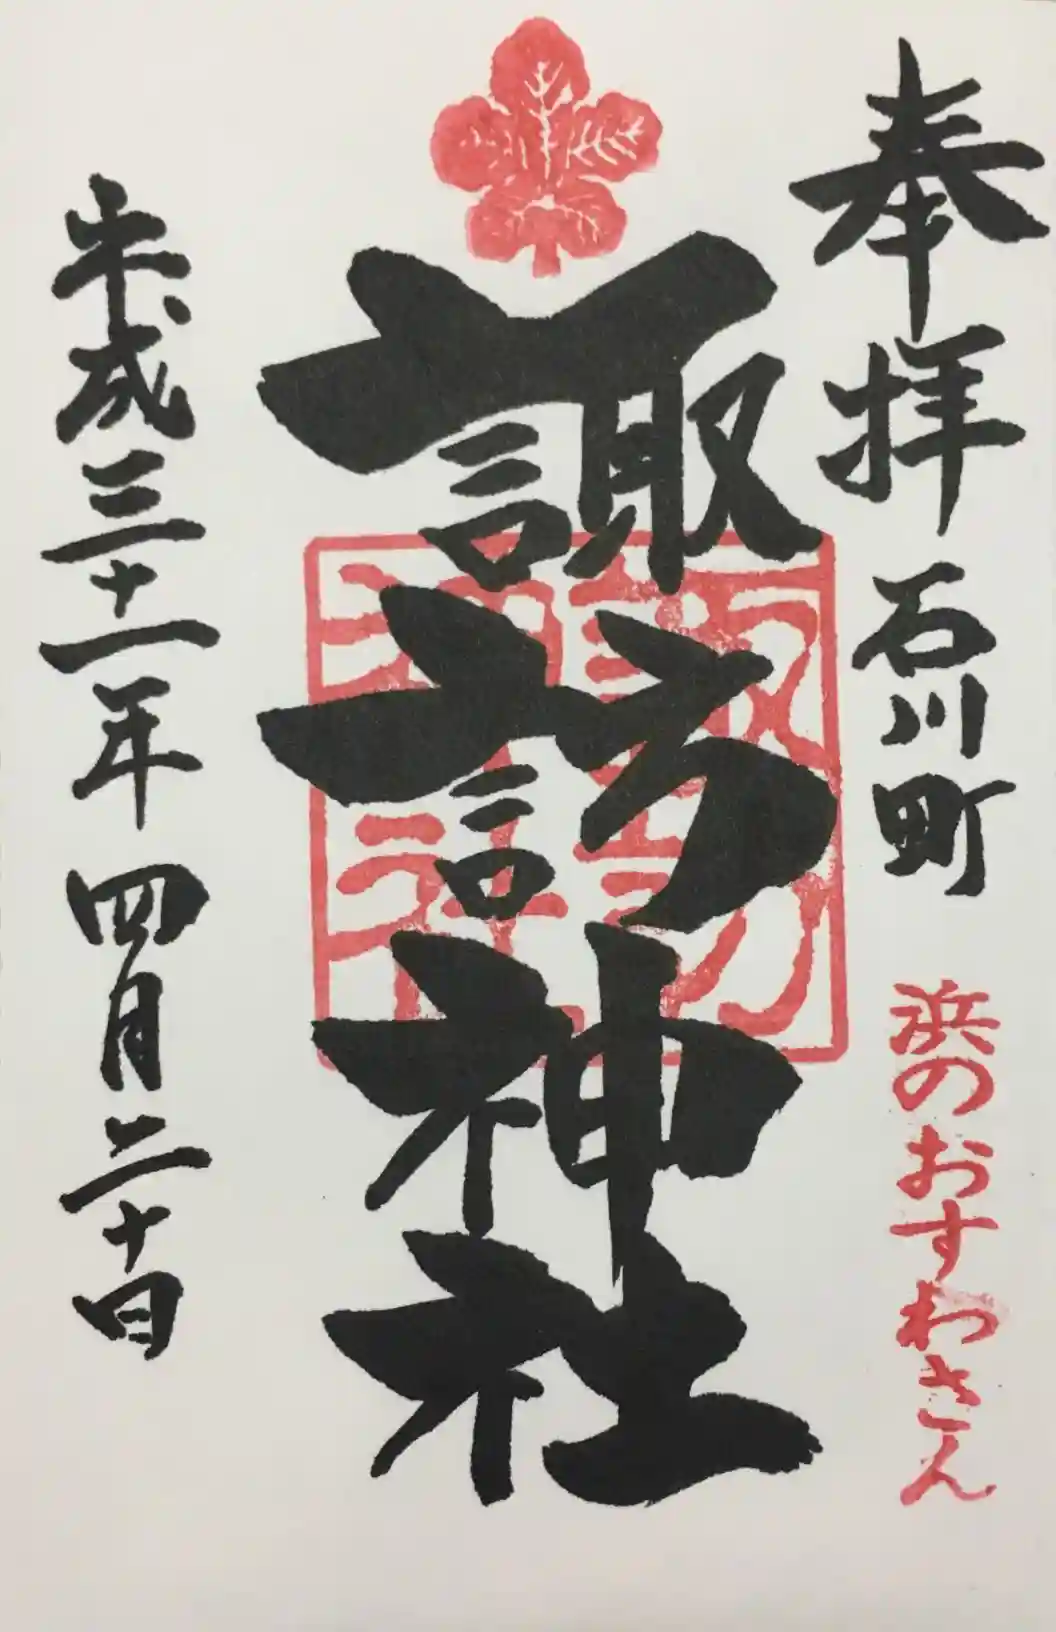 奉拝 石川町
浜のおすわさん
諏訪神社
平成三十一年 四月二十日